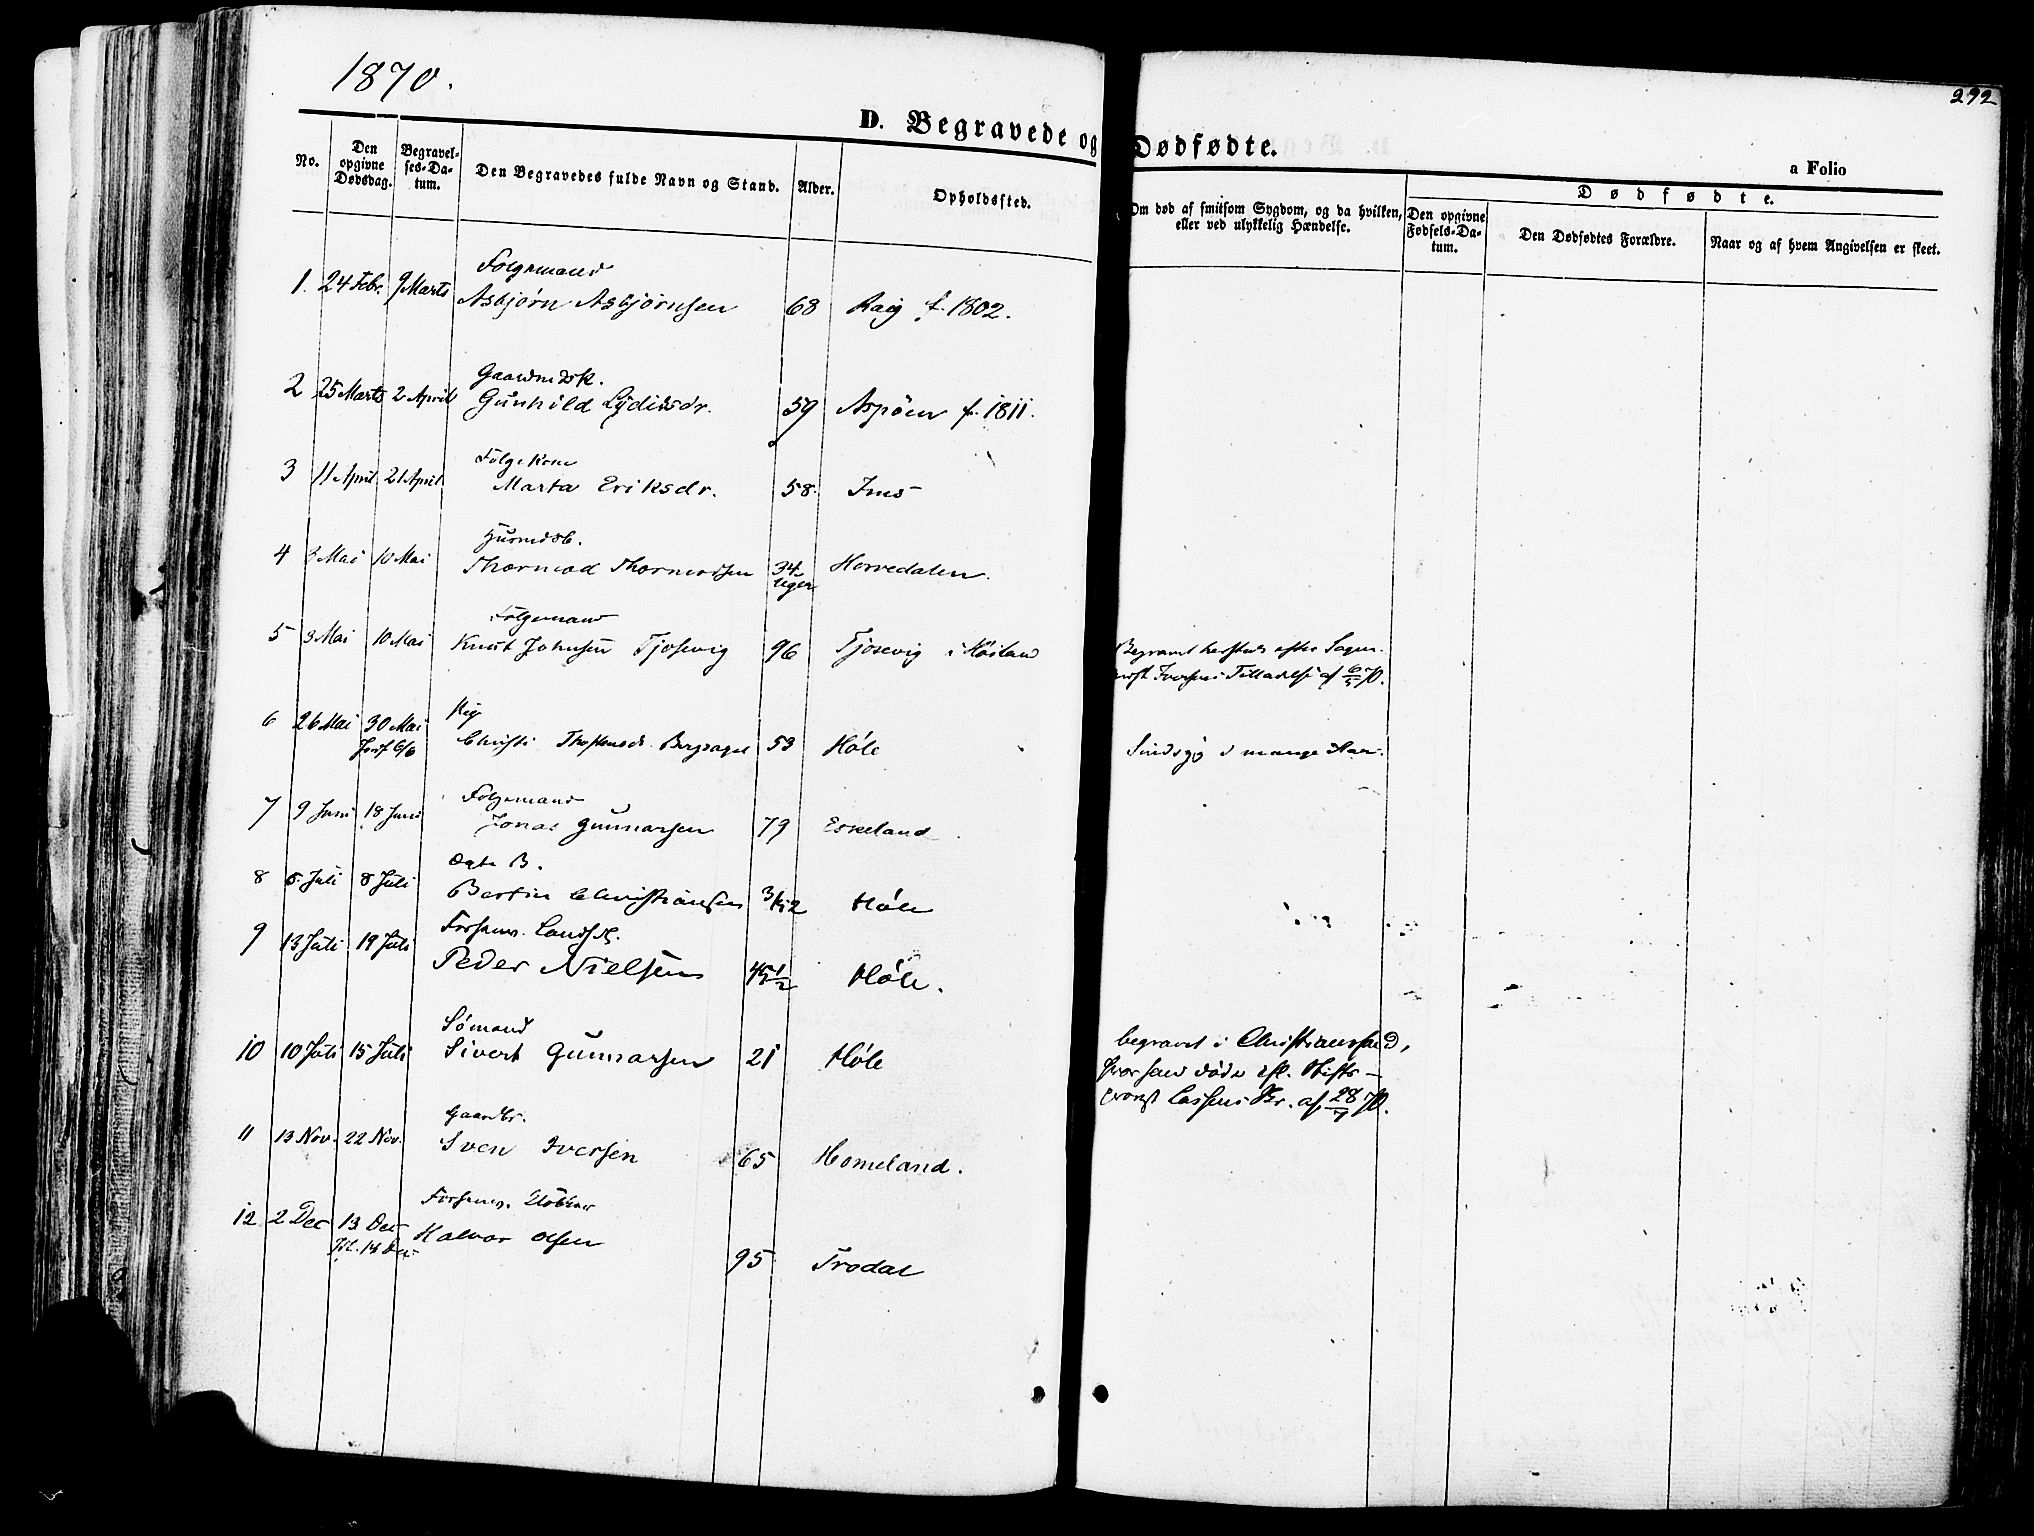 1870.
292
D. Begravede og Dødfødte.
a Folio
No.
Den opgivne Dødsdag.
Begravelses-Datum.
Den Begravedes fulde Navn og Stand.
Alder.
Opholdssted.
Om død af smitsom Sygdom, og da hvilken, eller ved ulykkelig Hændelse.
Dødfødte.
Den opgivne Fødsels-Datum.
Den Dødfødtes Forældre.
Naar og af hvem Angivelsen er skeet.
Folgemand
1. 24 Febr. 9 Marts Asbjørn Asbjørnsen 68 Raig f. 1802.
2 25 Marts 2 April Gunhild 59 Aspøen f. 1811.
Folgekone
3 11 April 21 April Marta Eriksdr. 58. Ims
4 3 Mai 10 Mai Thormod Thormodsen 34 Uger Horvedalen.
Folgemand
5 3 Mai 10 Mai Knut Johnsen Tjosevig 96 Tjosevig i Høiland
Begravet efter
Iversens Tilladelse af 6/5 70.
Pige
6 26 Mai 30 Mai Christi 53 Høle
Sindssyg i mange Aar.
Folgemand
7 9 Juni 18 Juni Jonas Gunnarsen 79 Eskeland
Ægte B.
8 5. Juli 8 Juli Bertin Christiansen 3/52 Høle
9 13 Juli 19 Juli Peder Nielsen 45 1/2 Høle.
Sømand
10 10 Juli 15 Juli Sivert Gunnarsen 21 Høle
begravet i Christianssand,
hvor han døde
Br. af 28/7 70.
Gaardbr.
11 13 Nov. 22 Nov. Sven Iversen 65 Homeland.
12 2 Dec 13 Dec Halvor Olsen 95 Trodal